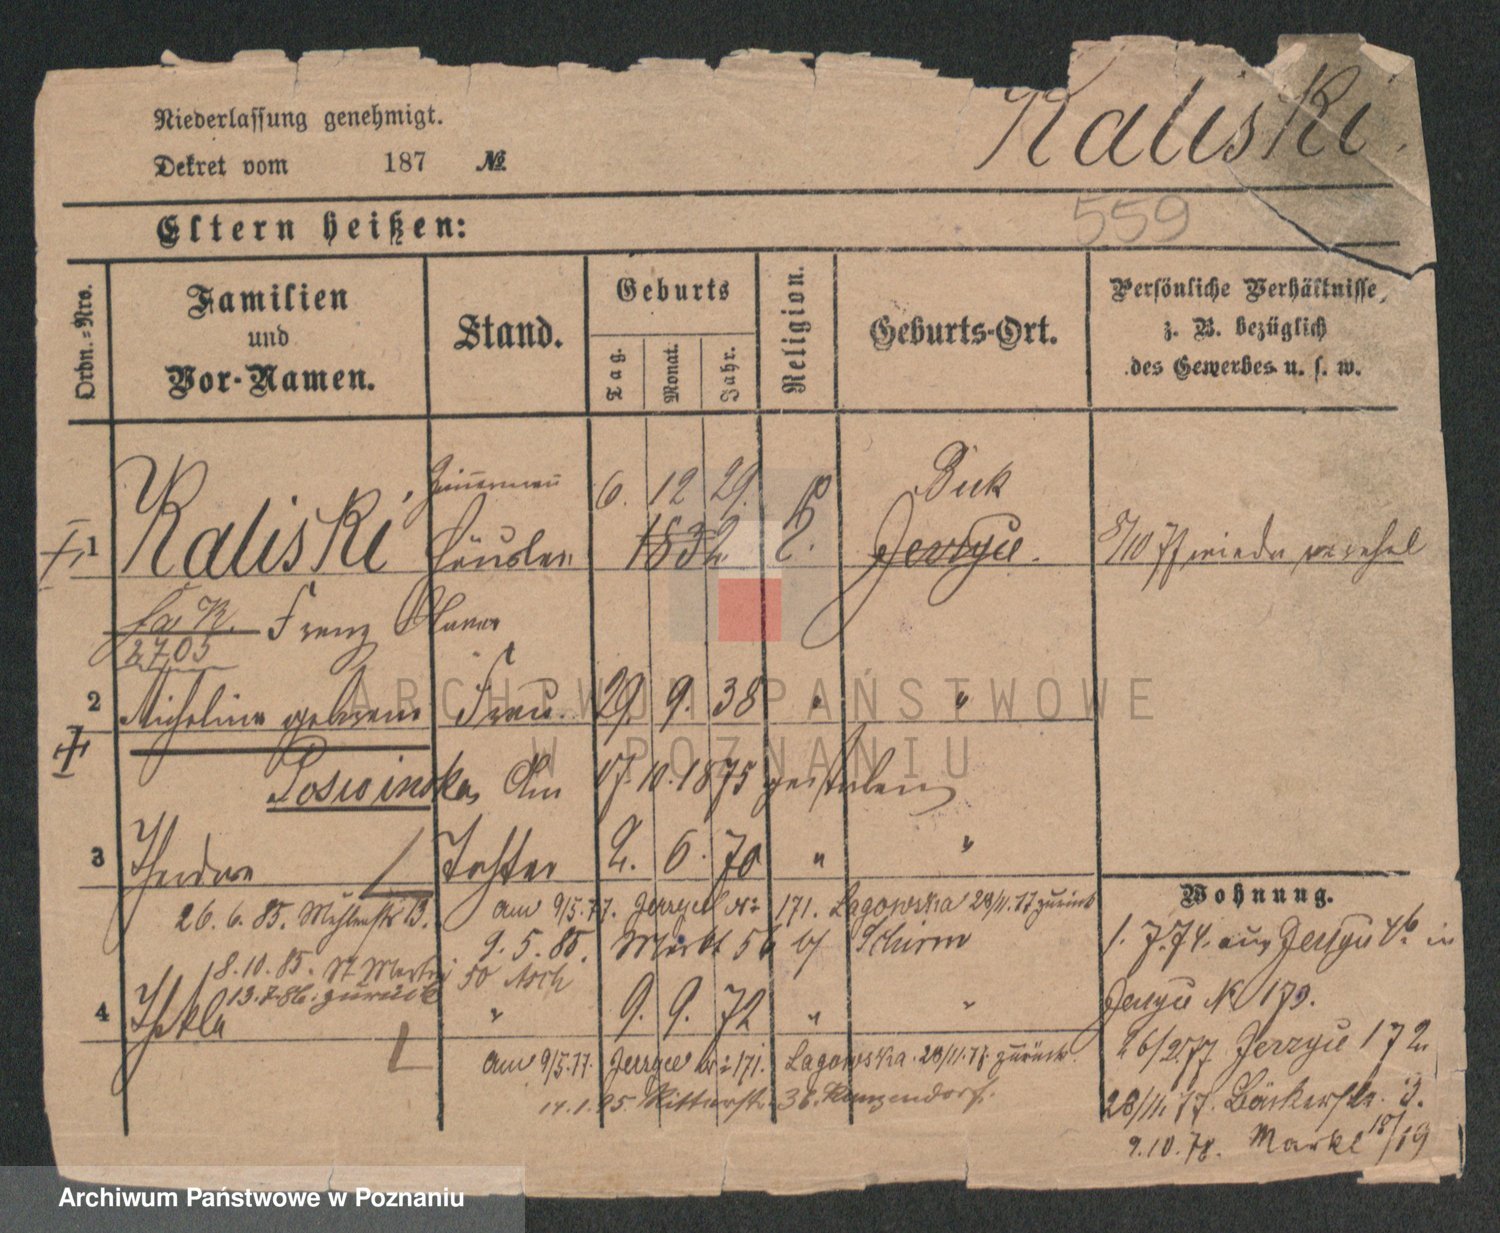 Niederlassung genehmigt.
Kaliski.
Dekret vom 187 №
559
Eltern heißen:
Ordn.-Nro.
Familien und Vor-Namen.
Stand.
Geburts
Tag. Monat. Jahr.
Religion.
Geburts-Ort.
Persönliche Verhältnisse, z. B. bezüglich des Gewerbes u. s. w.
6. 12 29. Buk
1 Kaliski, Häusler 1832 Jerzyce.
Franz
2703
2 Micheline geborene Frau. 29. 9. 38 " "
Am 17. 10. 1875 gestorben
3 Theodora Tochter 2. 6. 70 " "
26. 6. 85. Mühlenstr 13. am 9/5.77. Jerzyce Nr 171. Lagowska 28/11.77 zurück
9. 5. 85. Markt 56 b/ Schirm
18.10.85. St Martin 50 Asch
13.7.86. zurück
4 Thekla " 9. 9. 72 " "
am 9/5.77. Jerzyce Nr 171. Lagowska. 28/11.77. zurück.
Ritterstr. 38.
Wohnung.
1. 7. 74. aus Jerzyce in
Jerzyce № 170.
26/2 77 Jerzyce 172
28/11.77. Bäckerstr. 3.
9.10.78. Markt 18/19
ARCHIWUM PAŃSTWOWE
W POZNANIU
Archiwum Państwowe w Poznaniu